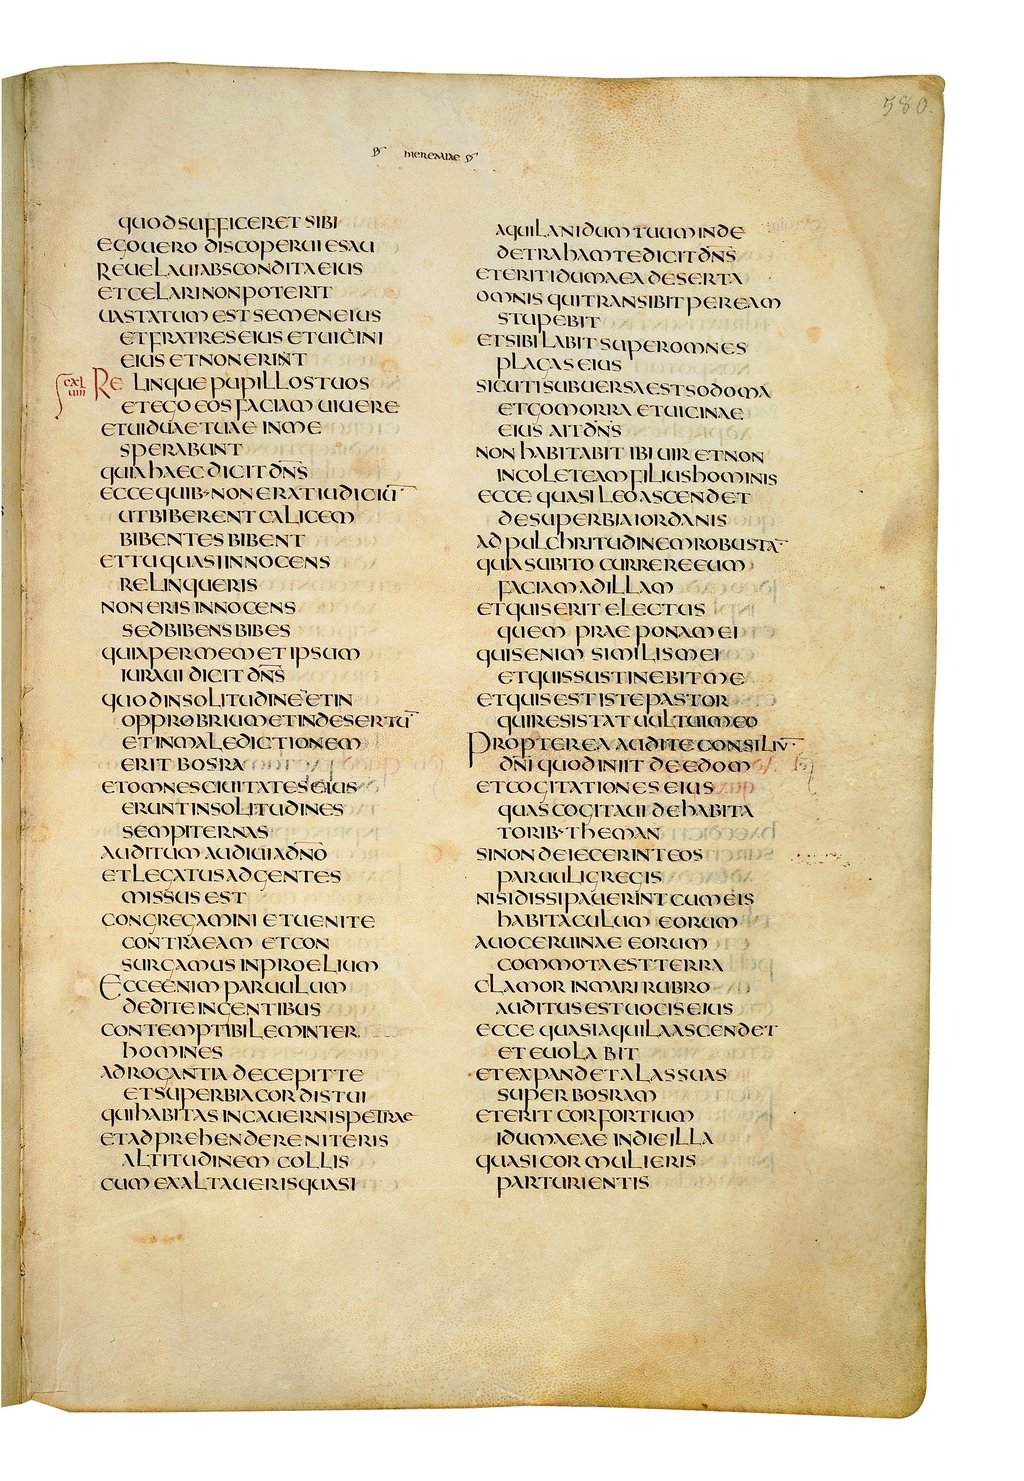 580.
hieremiae
quod sufficeret sibi
ego uero discooperui esau
reuelaui abscondita eius
et celari non poterit
uastatum est semen eius
et fratres eius et uicini
eius et non erint
cxl
uiii
Relinque pupillos tuos
et ego eos faciam uiuere
et uiduae tuae in me
sperabunt
quia haec dicit dn̄s
ecce quib· non erat iudiciū
ut biberent calicem
bibentes bibent
et tu quasi innocens
relinqueris
non eris innocens
sed bibens bibes
quia per memet ipsum
iuraui dicit dn̄s
quod in solitudine et in
opprobrium et in desertū
et in maledictionem
erit bosra
et omnes ciuitates eius
erunt in solitudines
sempiternas
auditum audiui a dn̄o
et legatus ad gentes
missus est
congregamini et uenite
contra eam et con
surgamus in proelium
Ecce enim paruulum
dedi te in gentibus
contemptibilem inter
homines
adrogantia decepit te
et superbia cordis tui
qui habitas in cauernis petrae
et adprehendere niteris
altitudinem collis
cum exaltaueris quasi
aquila nidum tuum inde
detraham te dicit dn̄s
et erit idumaea deserta
omnis qui transibit per eam
stupebit
et sibilabit super omnes
plagas eius
sicuti subuersa est sodoma
et gomorra et uicinae
eius ait dn̄s
non habitabit ibi uir et non
incolet eam filius hominis
ecce quasi leo ascendet
de superbia iordanis
ad pulchritudinem robustā
quia subito currere eum
faciam ad illam
et quis erit electus
quem praeponam ei
quis enim similis mei
et quis sustinebit me
et quis est iste pastor
qui resistat uultui meo
Propterea audite consiliū
dn̄i quod iniit de edom
et cogitationes eius
quas cogitaui de habita
torib· theman
si non deiecerint eos
paruuli gregis
nisi dissipauerint cum eis
habitaculum eorum
a uoce ruinae eorum
commota est terra
clamor in mari rubro
auditus est uocis eius
ecce quasi aquila ascendet
et euolabit
et expandet alas suas
super bosram
et erit cor fortium
idumaeae in die illa
quasi cor mulieris
parturientis